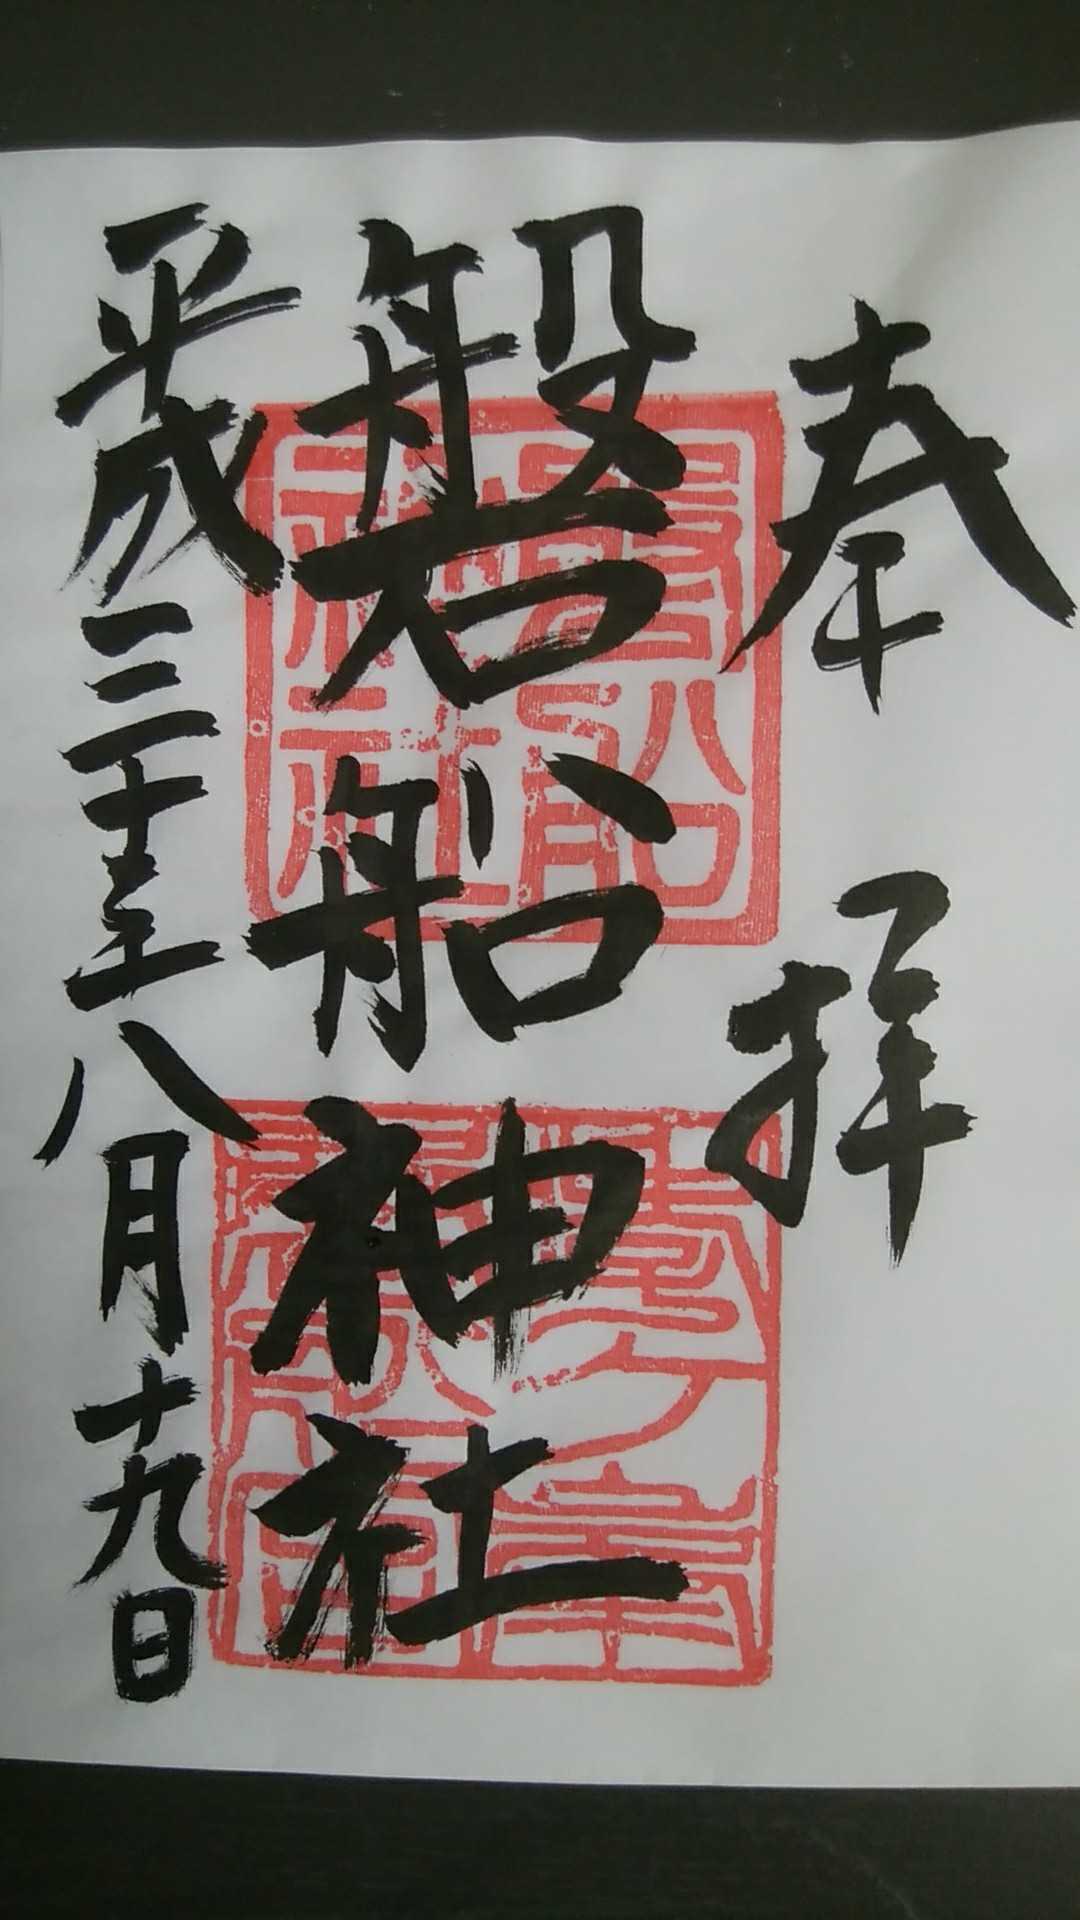 奉拝
磐船神社
磐船
神社
平成三十年八月十九日